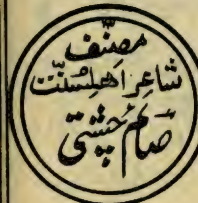 مصنّف
شاعرِ اہلِسُنّت
صائم چشتی